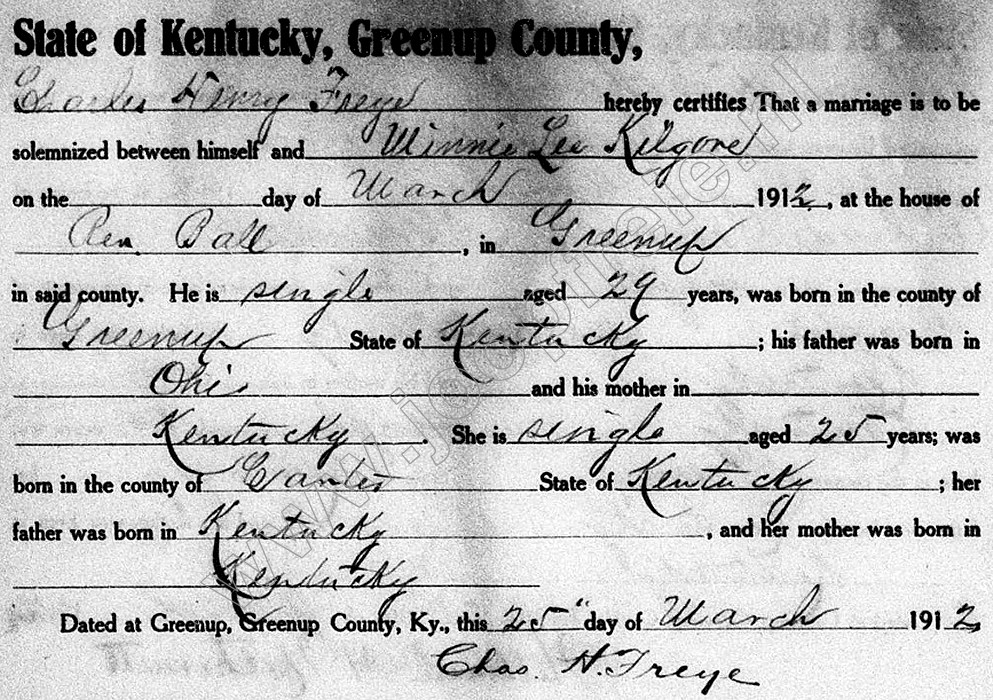 State of Kentucky, Greenup County,
Charles Henry Freye hereby certifies That a marriage is to be
solemnized between himself and Winnie Lee Kilgore
on the day of March 1912, at the house of
Rev. Ball, in Greenup
in said county. He is single aged 29 years, was born in the county of
Greenup State of Kentucky; his father was born in
Ohio and his mother in
Kentucky. She is single aged 25 years; was
born in the county of Carter State of Kentucky; her
father was born in Kentucky, and her mother was born in
Kentucky
Dated at Greenup, Greenup County, Ky., this 25" day of March 1912
Chas. H. Freye